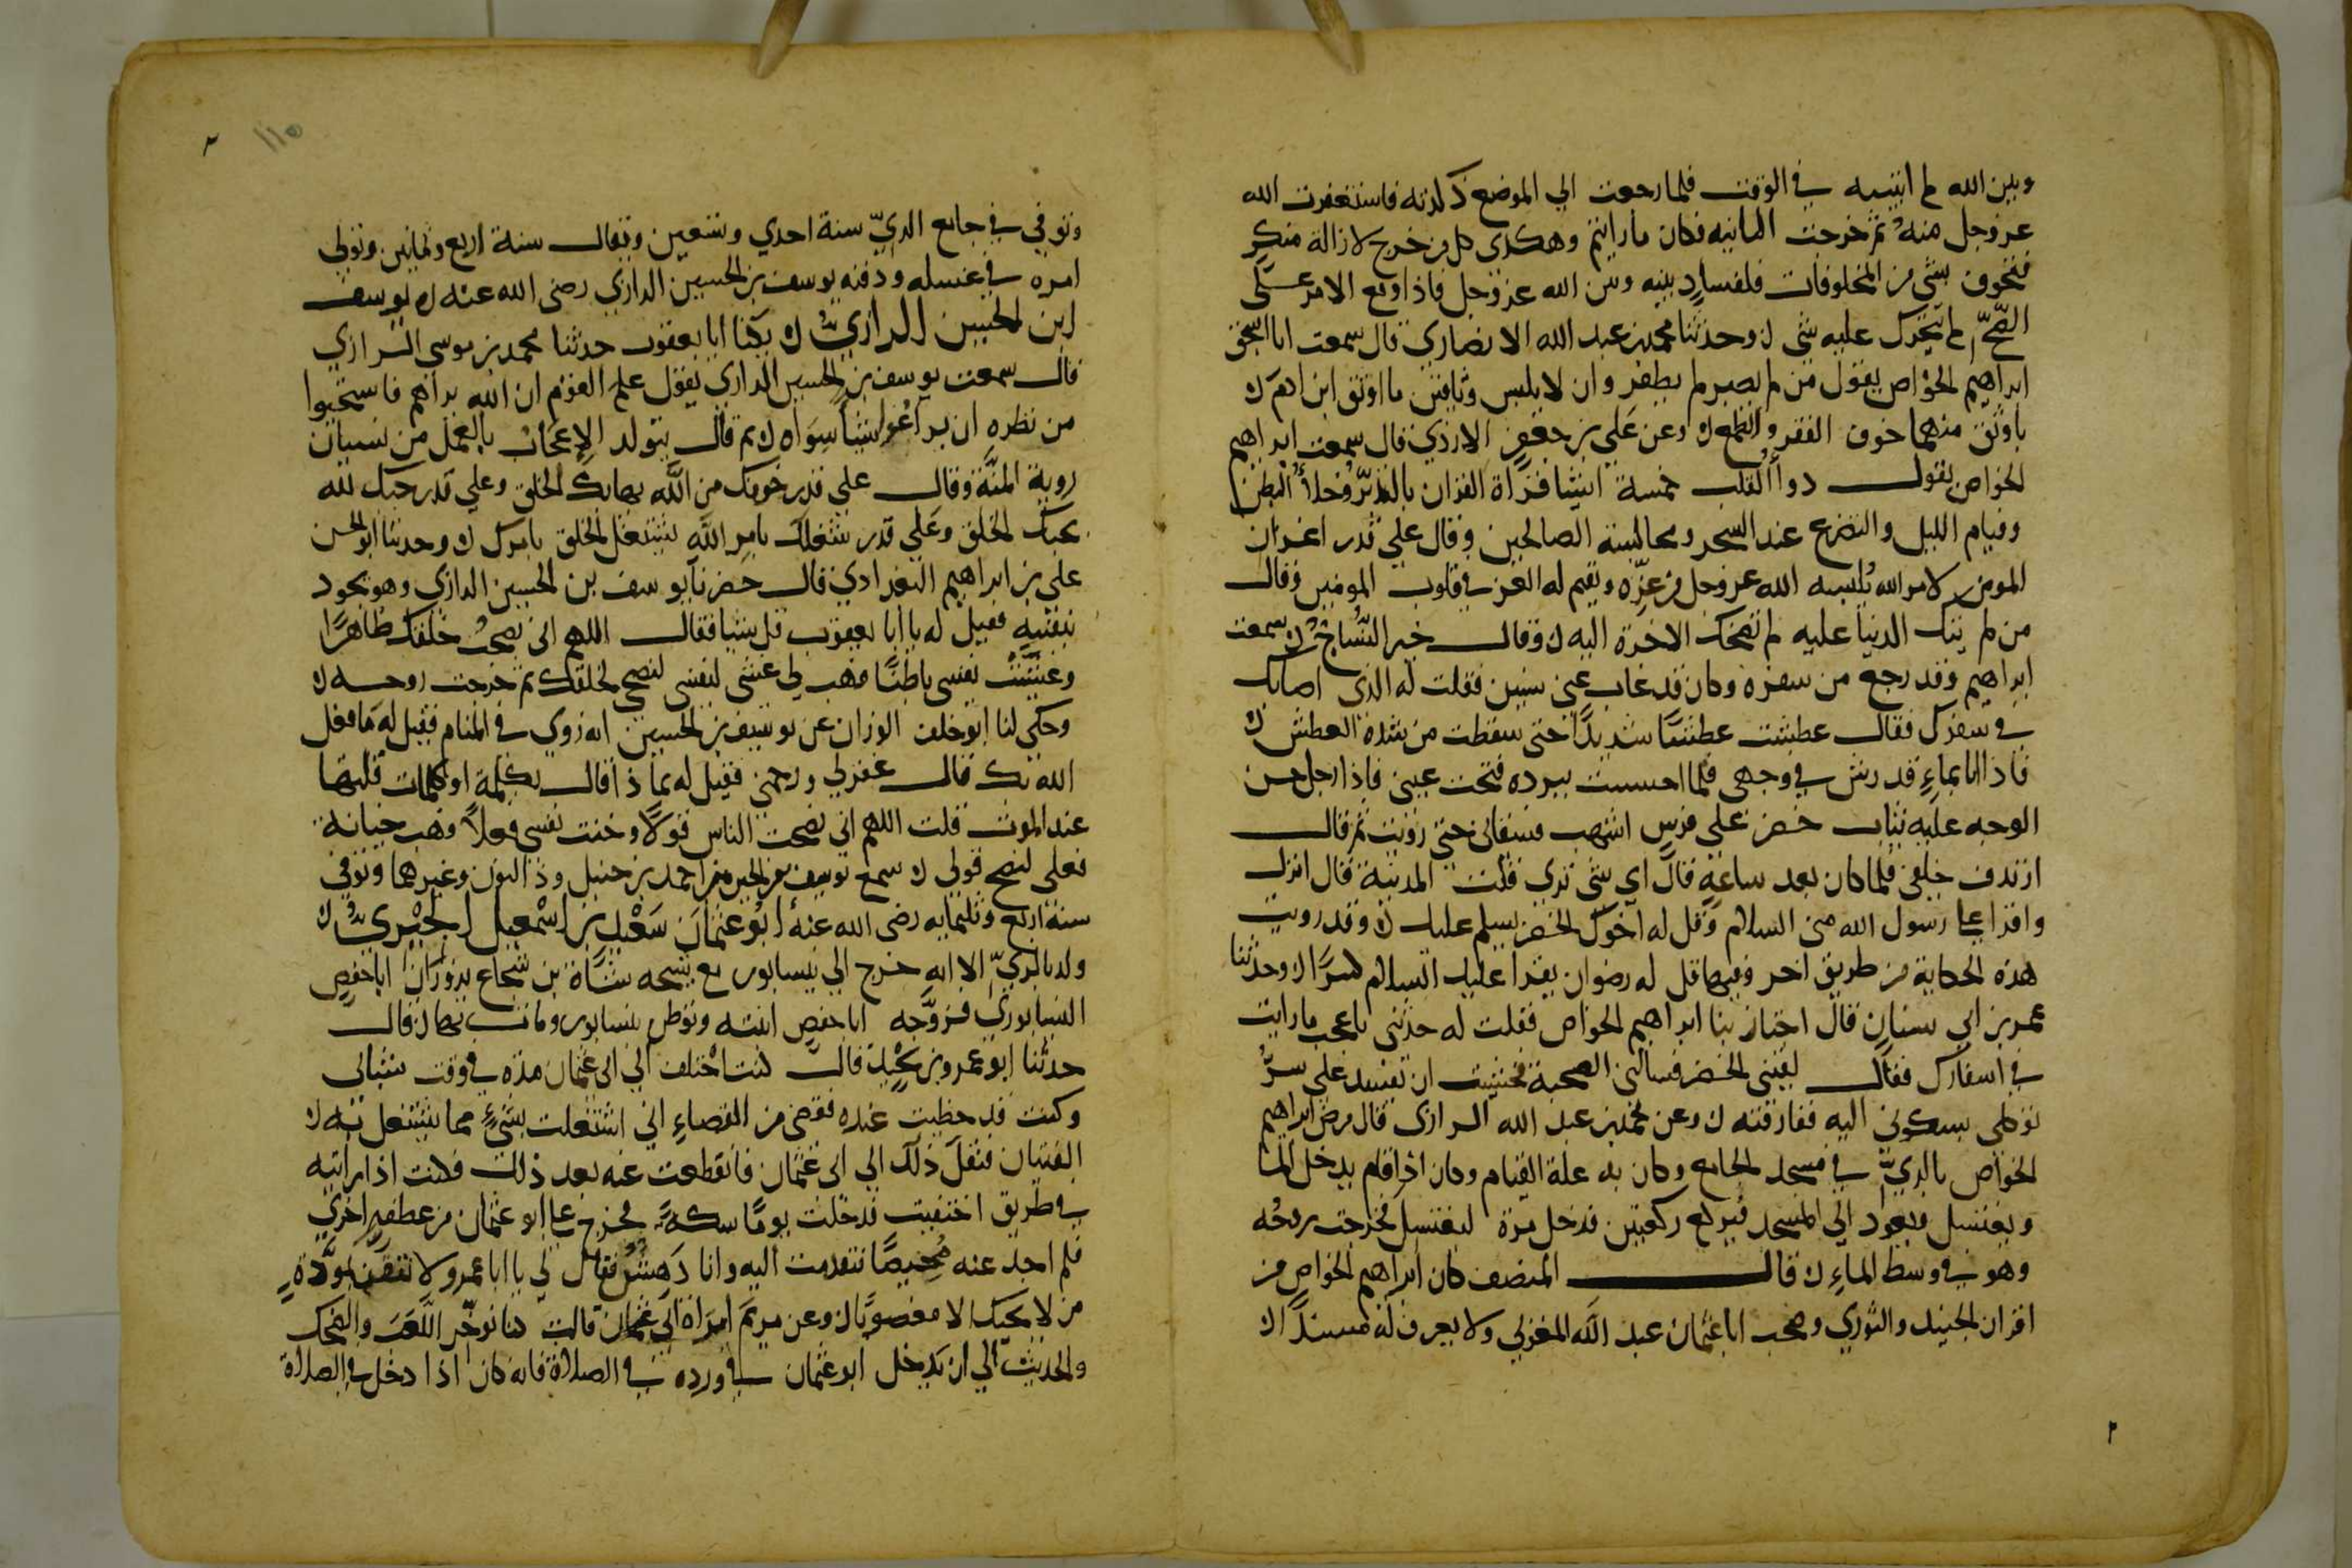 وبين الله لم انتبه في الوقت فلما رجعت الي الموضع ذكرته فاستغفرت الله
عز وجل منه ثم خرجت الثانيه فكان ما رايتم وهكذى كل من خرج لازالة منكر
فتحرك شي من المخلوقات فلفساد بينه وبين الله عز وجل فاذا وقع الامر على
الصحة لم يتحرك عليه شي ن وحدثنا محمد بن عبد الله الانصاري قال سمعت ابا اسحق
ابراهيم الخواص يقول من لم يصبر لم يظفر وان لابليس وثاقين ما اوثق ابن ادم ن
باوثق منهما خوف الفقر والطمع ن وعن علي بن جعفر الازدي قال سمعت ابراهيم
الخواص يقول دوا القلب خمسة اشيا قراة القران بالتدبر وخلا البطن
وقيام الليل والتضرع عند السحر ومجالسة الصالحين وقال علي قدر اعزاز
المومن لامر الله يلبسه الله عز وجل من عزه ويقيم له العز في قلوب المومنين وقال
من لم تبك الدنيا عليه لم تضحك الاخرة اليه ن وقال خير النساج سمعت
ابراهيم وقد رجع من سفره وكان قد غاب عني سنين فقلت له الذي اصابك
في سفرك فقال عطشت عطشا شديدا حتي سقطت من شدة العطش ن
فاذا انا بماء قد رش في وجهي فلما احسست ببرده فتحت عيني فاذا رجل حسن
الوجه عليه ثياب خضر علي فرس اشهب فسقاني حتي رويت ثم قال
ارتدف خلفي فلما كان بعد ساعة قال اي شي تري قلت المدينة قال انزل
واقرا علي رسول الله مني السلام وقل له اخوك الخضر يسلم عليك ن وقد رويت
هذه الحكاية من طريق اخر وفيها قل له رضوان يقرا عليك السلام كثيرا ن وحدثنا
عمر بن ابي سنان قال اجتاز بنا ابراهيم الخواص فقلت له حدثني باعجب ما رايت
في اسفارك فقال لقيني الخضر فسالني الصحبة فخشيت ان تفسد علي سر
توكلي بسكوني اليه ففارقته ن وعن محمد بن عبد الله الرازي قال مرض ابراهيم
الخواص بالري في مسجد الجامع وكان به علة القيام وكان اذا قام يدخل الما
ويغتسل ويعود الي المسجد فيركع ركعتين فدخل مرة ليغتسل فخرجت روحه
وهو في وسط الماء ن قال المصنف كان ابراهيم الخواص من
اقران الجنيد والثوري وصحب ابا عثمان عبد الله المغربي ولا يعرف له مسندا ن
٢
١١٥
وتوفي في جامع الري سنة احدي وتسعين ويقال سنة اربع وثمانين وتولي
امره في غسله ودفنه يوسف بن الحسين الرازي رضي الله عنه ن يوسف
ابن الحسين الرازي ن يكنا ابا يعقوب حدثنا محمد بن موسي الرازي
قال سمعت يوسف بن الحسين الرازي يقول علم القوم ان الله يراهم فاستحيوا
من نظره ان يراعوا شيا سواه ن ثم قال يتولد الاعجاب بالعمل من نسيان
روية المنة وقال علي قدر خوفك من الله يهابك الخلق وعلي قدر حبك لله
يحبك الخلق وعلي قدر شغلك بامر الله يشتغل الخلق بامرك ن وحدثنا ابو الحسن
علي بن ابراهيم البغدادي قال حضرنا يوسف بن الحسين الرازي وهو يجود
بنفسه فقيل له يا ابا يعقوب قل شيا فقال اللهم اني نصحت خلقك ظاهرا
وغششت نفسي باطنا فهب لي غشي لنفسي لنصحي لخلقك ثم خرجت روحه ن
وحكي لنا ابو خلف الوزان عن يوسف بن الحسين انه روي في المنام فقيل له ما فعل
الله بك قال غفر لي ورحمني فقيل له بما ذا قال بكلمة او كلمات قلتها
عند الموت قلت اللهم اني نصحت الناس قولا وخنت نفسي فعلا فهب خيانة
فعلي لنصح قولي ن سمع يوسف بن الحسين من احمد بن حنبل وذا النون وغيرهما وتوفي
سنة اربع وثلثمايه رضي الله عنه ابو عثمان سعيد بن اسمعيل الحيري ن
ولد بالري الا انه خرج الي نيسابور مع شيخه شاة بن شجاع يزوران ابا حفص
النيسابوري فزوجه ابا حفص ابنته وتوطن نيسابور ومات بها ن قال
حدثنا ابو عمرو بن نجيد قال كنت اختلف الي ابي عثمان مدة في وقت شبابي
وكنت قد حظيت عنده فقضي من القضاء اني اشتغلت بشيء مما يشتغل به ن
الفتيان فنقل ذلك الي ابي عثمان فانقطعت عنه بعد ذلك فكنت اذا رايته
في طريق اختفيت فدخلت يوما سكة فخرج علي ابو عثمان من عطفه اخري
فلم اجد عنه محيصا فتقدمت اليه وانا دهش فقال لي يا ابا عمرو لا تثقن بمودة
من لا يحبك الا معصوما ن وعن مريم امراة ابي عثمان قالت كنا نوخر اللعب والضحك
والحديث الي ان يدخل ابو عثمان في ورده في الصلاة فانه كان اذا دخل في الصلاة